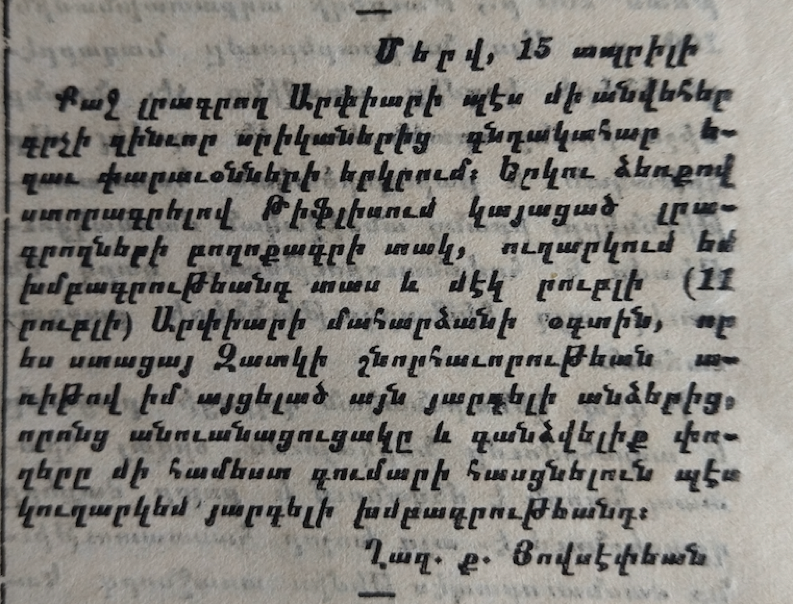 Մերվ, 15 ապրիլի
Քաջ լրագրող Արփիարի պէս մի անվեհեր
գրչի զինւոր սրիկաներից գնդակահար ե-
ղաւ փարաւօնների երկրում։ Երկու ձեռքով
ստորագրելով Թիֆլիսում կայացած լրա-
գրողների բողոքագրի տակ, ուղարկում եմ
խմբագրութեանդ տաս և մէկ րուբլի (11
րուբլի) Արփիարի մահարձանի օգտին, որ
ես ստացայ Զատկի շնորհաւորութեան ա-
ռիթով իմ այցելած այն յարգելի անձերից,
որոնց անուանացուցակը և գանձվելիք փո-
ղերը մի համեստ գումարի հասցնելուն պէս
կուղարկեմ յարգելի խմբագրութեանդ։
Ղաղ. ք. Յովսէփեան